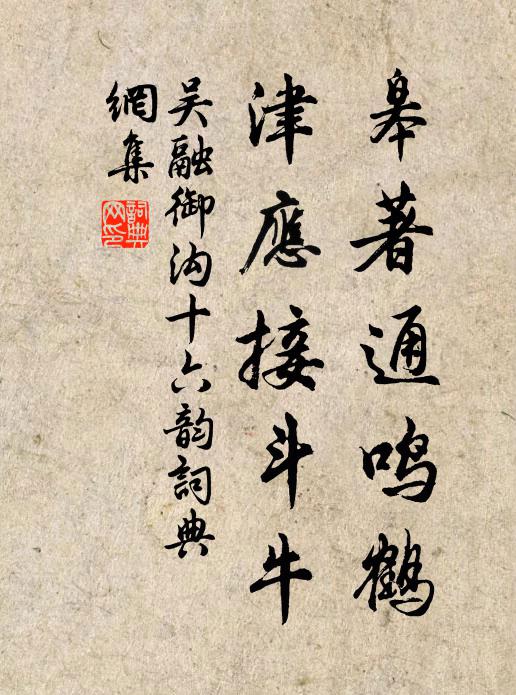 皋著通鸣鹤
津應接斗牛
吴融御沟十六韵詞典
網集
詞典
网印